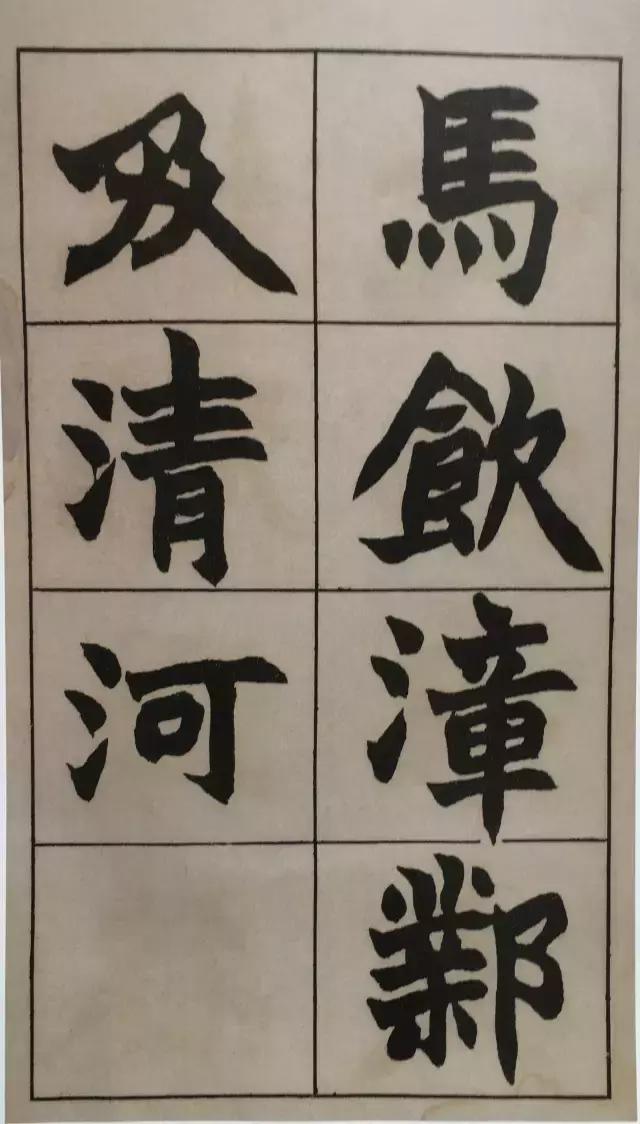 馬飲漳鄴
及清河